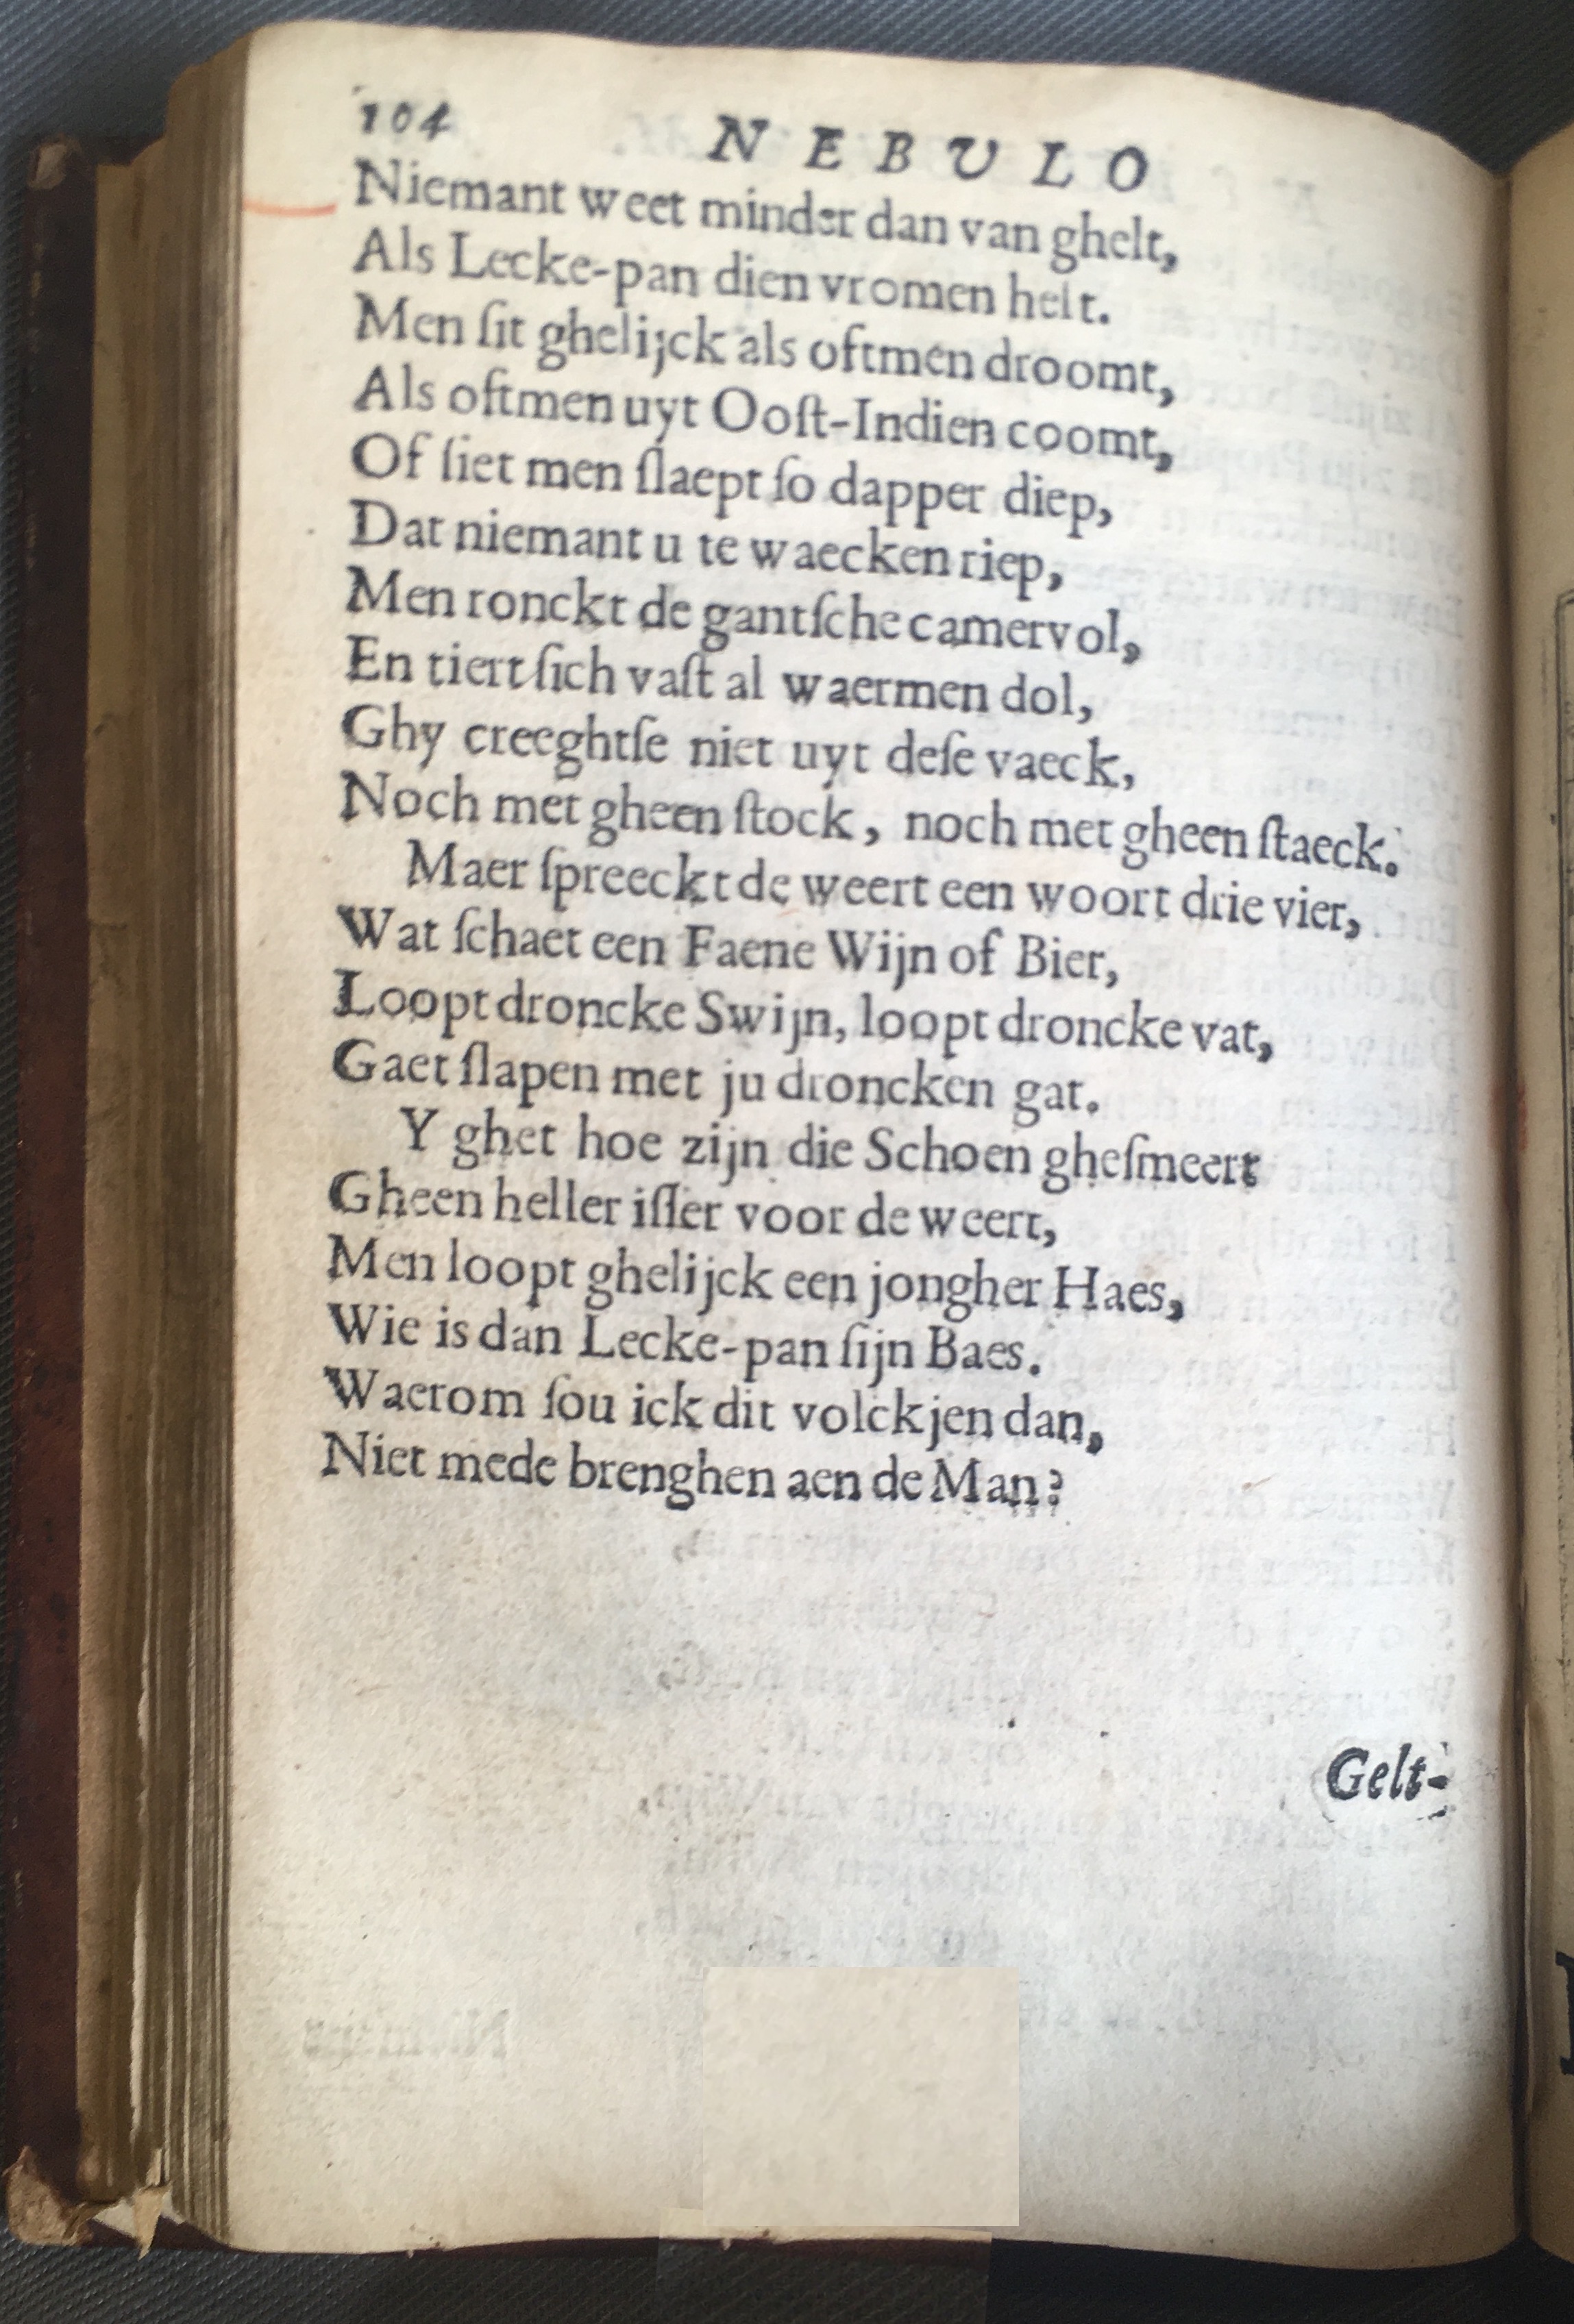 104 NEBULO
Niemant weet minder dan van ghelt,
Als Lecke-pan dien vromen helt.
Men ſit ghelijck als oftmen droomt,
Als oftmen uyt Ooſt-Indien coomt,
Of ſiet men ſlaept ſo dapper diep,
Dat niemant u te waecken riep,
Men ronckt de gantſche camervol,
En tiert ſich vaſt al waermen dol,
Ghy creeghtſe niet uyt deſe vaeck,
Noch met gheen ſtock, noch met gheen ſtaeck.
Maer ſpreeckt de weert een woort drie vier,
Wat ſchaet een Faene Wijn of Bier,
Loopt droncke Swijn, loopt droncke vat,
Gaet ſlapen met ju droncken gat.
Y ghet hoe zijn die Schoen gheſmeert
Gheen heller iſſer voor de weert,
Men loopt ghelijck een jongher Haes,
Wie is dan Lecke-pan ſijn Baes.
Waerom ſou ick dit volckjen dan,
Niet mede brenghen aen de Man?
Gelt-